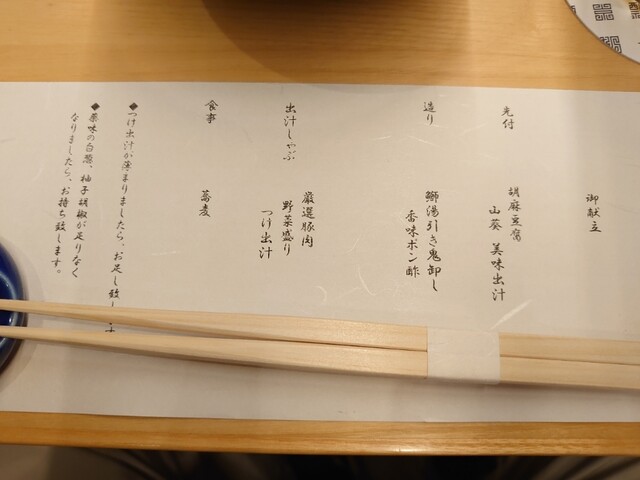 御献立
先付
胡麻豆腐
山葵 美味出汁
造り
鰤湯引き鬼卸し
香味ポン酢
出汁しゃぶ
厳選豚肉
野菜盛り
つけ出汁
食事
蕎麦
◆つけ出汁が薄まりましたら、お足し致し
◆薬味の白葱、柚子胡椒が足りなく
なりましたら、お持ち致します。